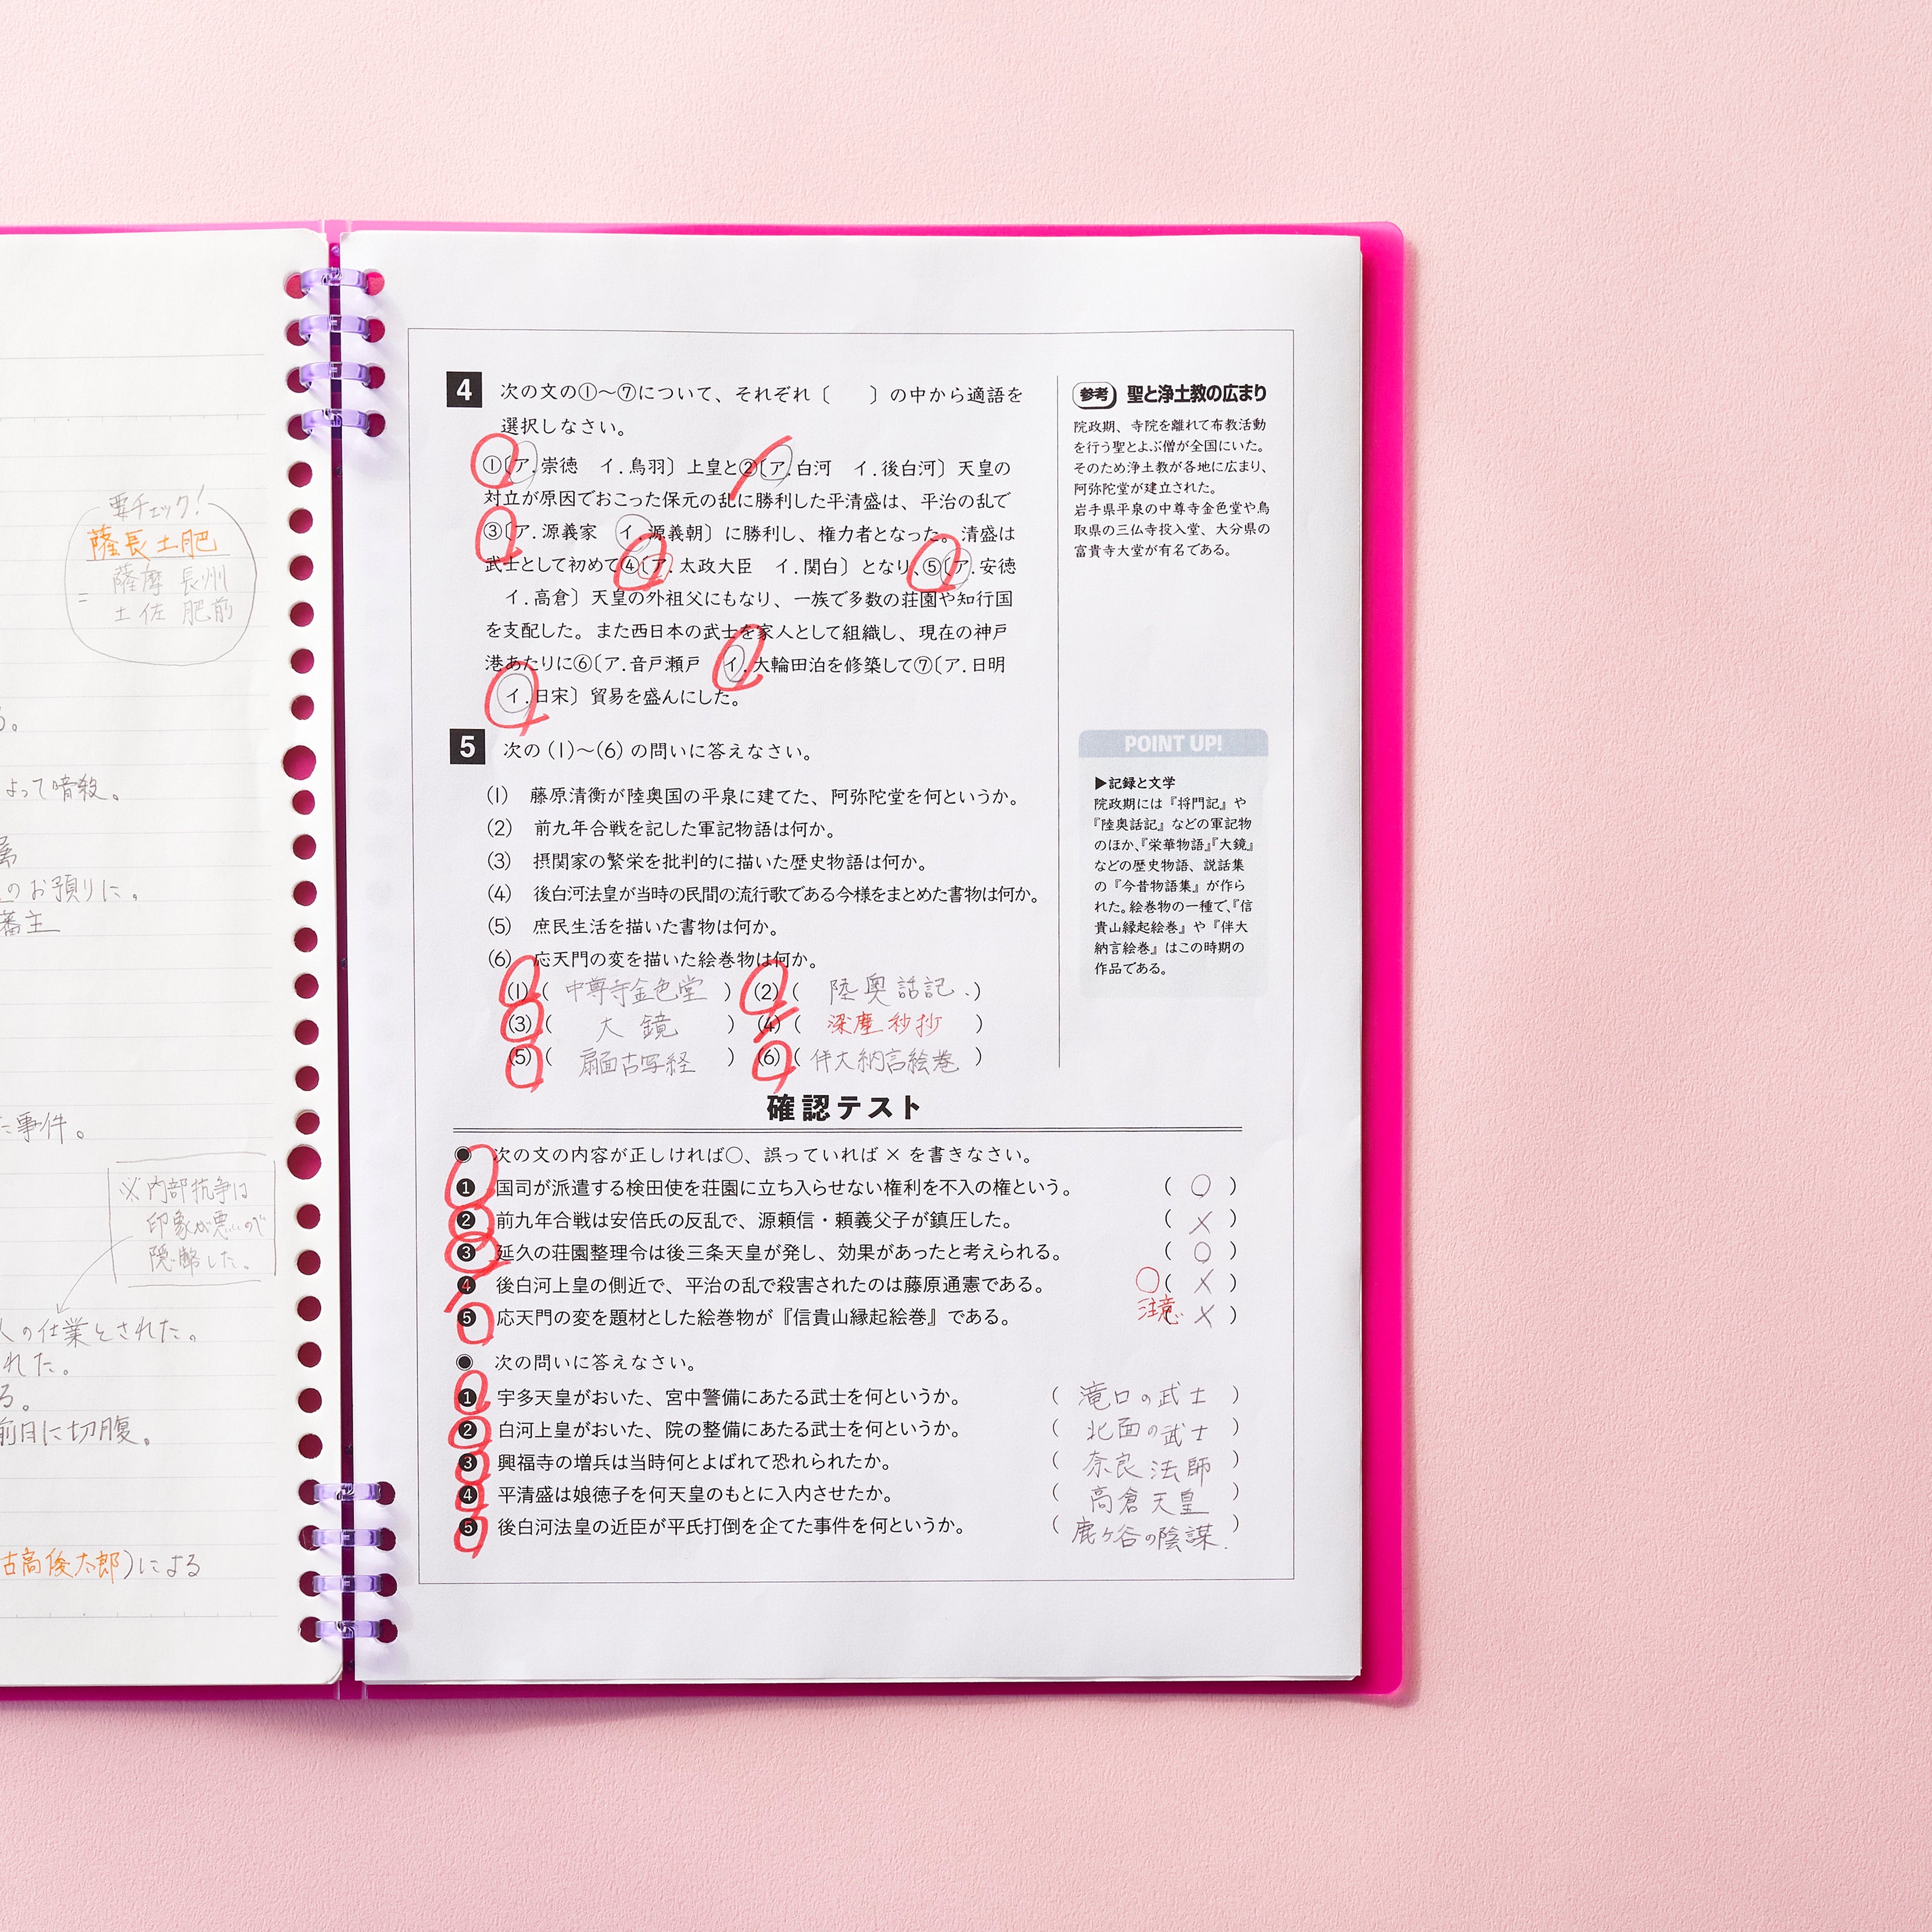 要チェック!
薩長土肥
薩摩 長州
= 土佐 肥前
る。
よって暗殺。
のお預りに。
藩主
た事件。
※内部抗争は
印象が悪いので
隠蔽した。
人の仕業とされた。
れた。
る。
前日に切腹。
古高俊太郎)による
4 次の文の①～⑦について、それぞれ〔　　〕の中から適語を
選択しなさい。
①〔ア.崇徳　イ.鳥羽〕上皇と②〔ア.白河　イ.後白河〕天皇の
対立が原因でおこった保元の乱に勝利した平清盛は、平治の乱で
③〔ア.源義家　イ.源義朝〕に勝利し、権力者となった。清盛は
武士として初めて④〔ア.太政大臣　イ.関白〕となり、⑤〔ア.安徳
イ.高倉〕天皇の外祖父にもなり、一族で多数の荘園や知行国
を支配した。また西日本の武士を家人として組織し、現在の神戸
港あたりに⑥〔ア.音戸瀬戸　イ.大輪田泊を修築して⑦〔ア.日明
イ.日宋〕貿易を盛んにした。
5 次の(1)～(6)の問いに答えなさい。
(1)　藤原清衡が陸奥国の平泉に建てた、阿弥陀堂を何というか。
(2)　前九年合戦を記した軍記物語は何か。
(3)　摂関家の繁栄を批判的に描いた歴史物語は何か。
(4)　後白河法皇が当時の民間の流行歌である今様をまとめた書物は何か。
(5)　庶民生活を描いた書物は何か。
(6)　応天門の変を描いた絵巻物は何か。
(1)(　中尊寺金色堂　)　(2)(　陸奥話記.)
(3)(　大鏡　)　(4)(　深塵秒抄　)
(5)(　扇面古写経　)　(6)(　伴大納言絵巻　)
参考 聖と浄土教の広まり
院政期、寺院を離れて布教活動
を行う聖とよぶ僧が全国にいた。
そのため浄土教が各地に広まり、
阿弥陀堂が建立された。
岩手県平泉の中尊寺金色堂や鳥
取県の三仏寺投入堂、大分県の
富貴寺大堂が有名である。
POINT UP!
▶記録と文学
院政期には『将門記』や
『陸奥話記』などの軍記物
のほか、『栄華物語』『大鏡』
などの歴史物語、説話集
の『今昔物語集』が作ら
れた。絵巻物の一種で、『信
貴山縁起絵巻』や『伴大
納言絵巻』はこの時期の
作品である。
確認テスト
◉ 次の文の内容が正しければ○、誤っていれば×を書きなさい。
❶ 国司が派遣する検田使を荘園に立ち入らせない権利を不入の権という。(　○　)
❷ 前九年合戦は安倍氏の反乱で、源頼信・頼義父子が鎮圧した。(　×　)
❸ 延久の荘園整理令は後三条天皇が発し、効果があったと考えられる。(　○　)
❹ 後白河上皇の側近で、平治の乱で殺害されたのは藤原通憲である。○(　×　)
❺ 応天門の変を題材とした絵巻物が『信貴山縁起絵巻』である。注意(　×　)
◉ 次の問いに答えなさい。
❶ 宇多天皇がおいた、宮中警備にあたる武士を何というか。(　滝口の武士　)
❷ 白河上皇がおいた、院の整備にあたる武士を何というか。(　北面の武士　)
❸ 興福寺の増兵は当時何とよばれて恐れられたか。(　奈良法師　)
❹ 平清盛は娘徳子を何天皇のもとに入内させたか。(　高倉天皇　)
❺ 後白河法皇の近臣が平氏打倒を企てた事件を何というか。(　鹿ケ谷の陰謀.)